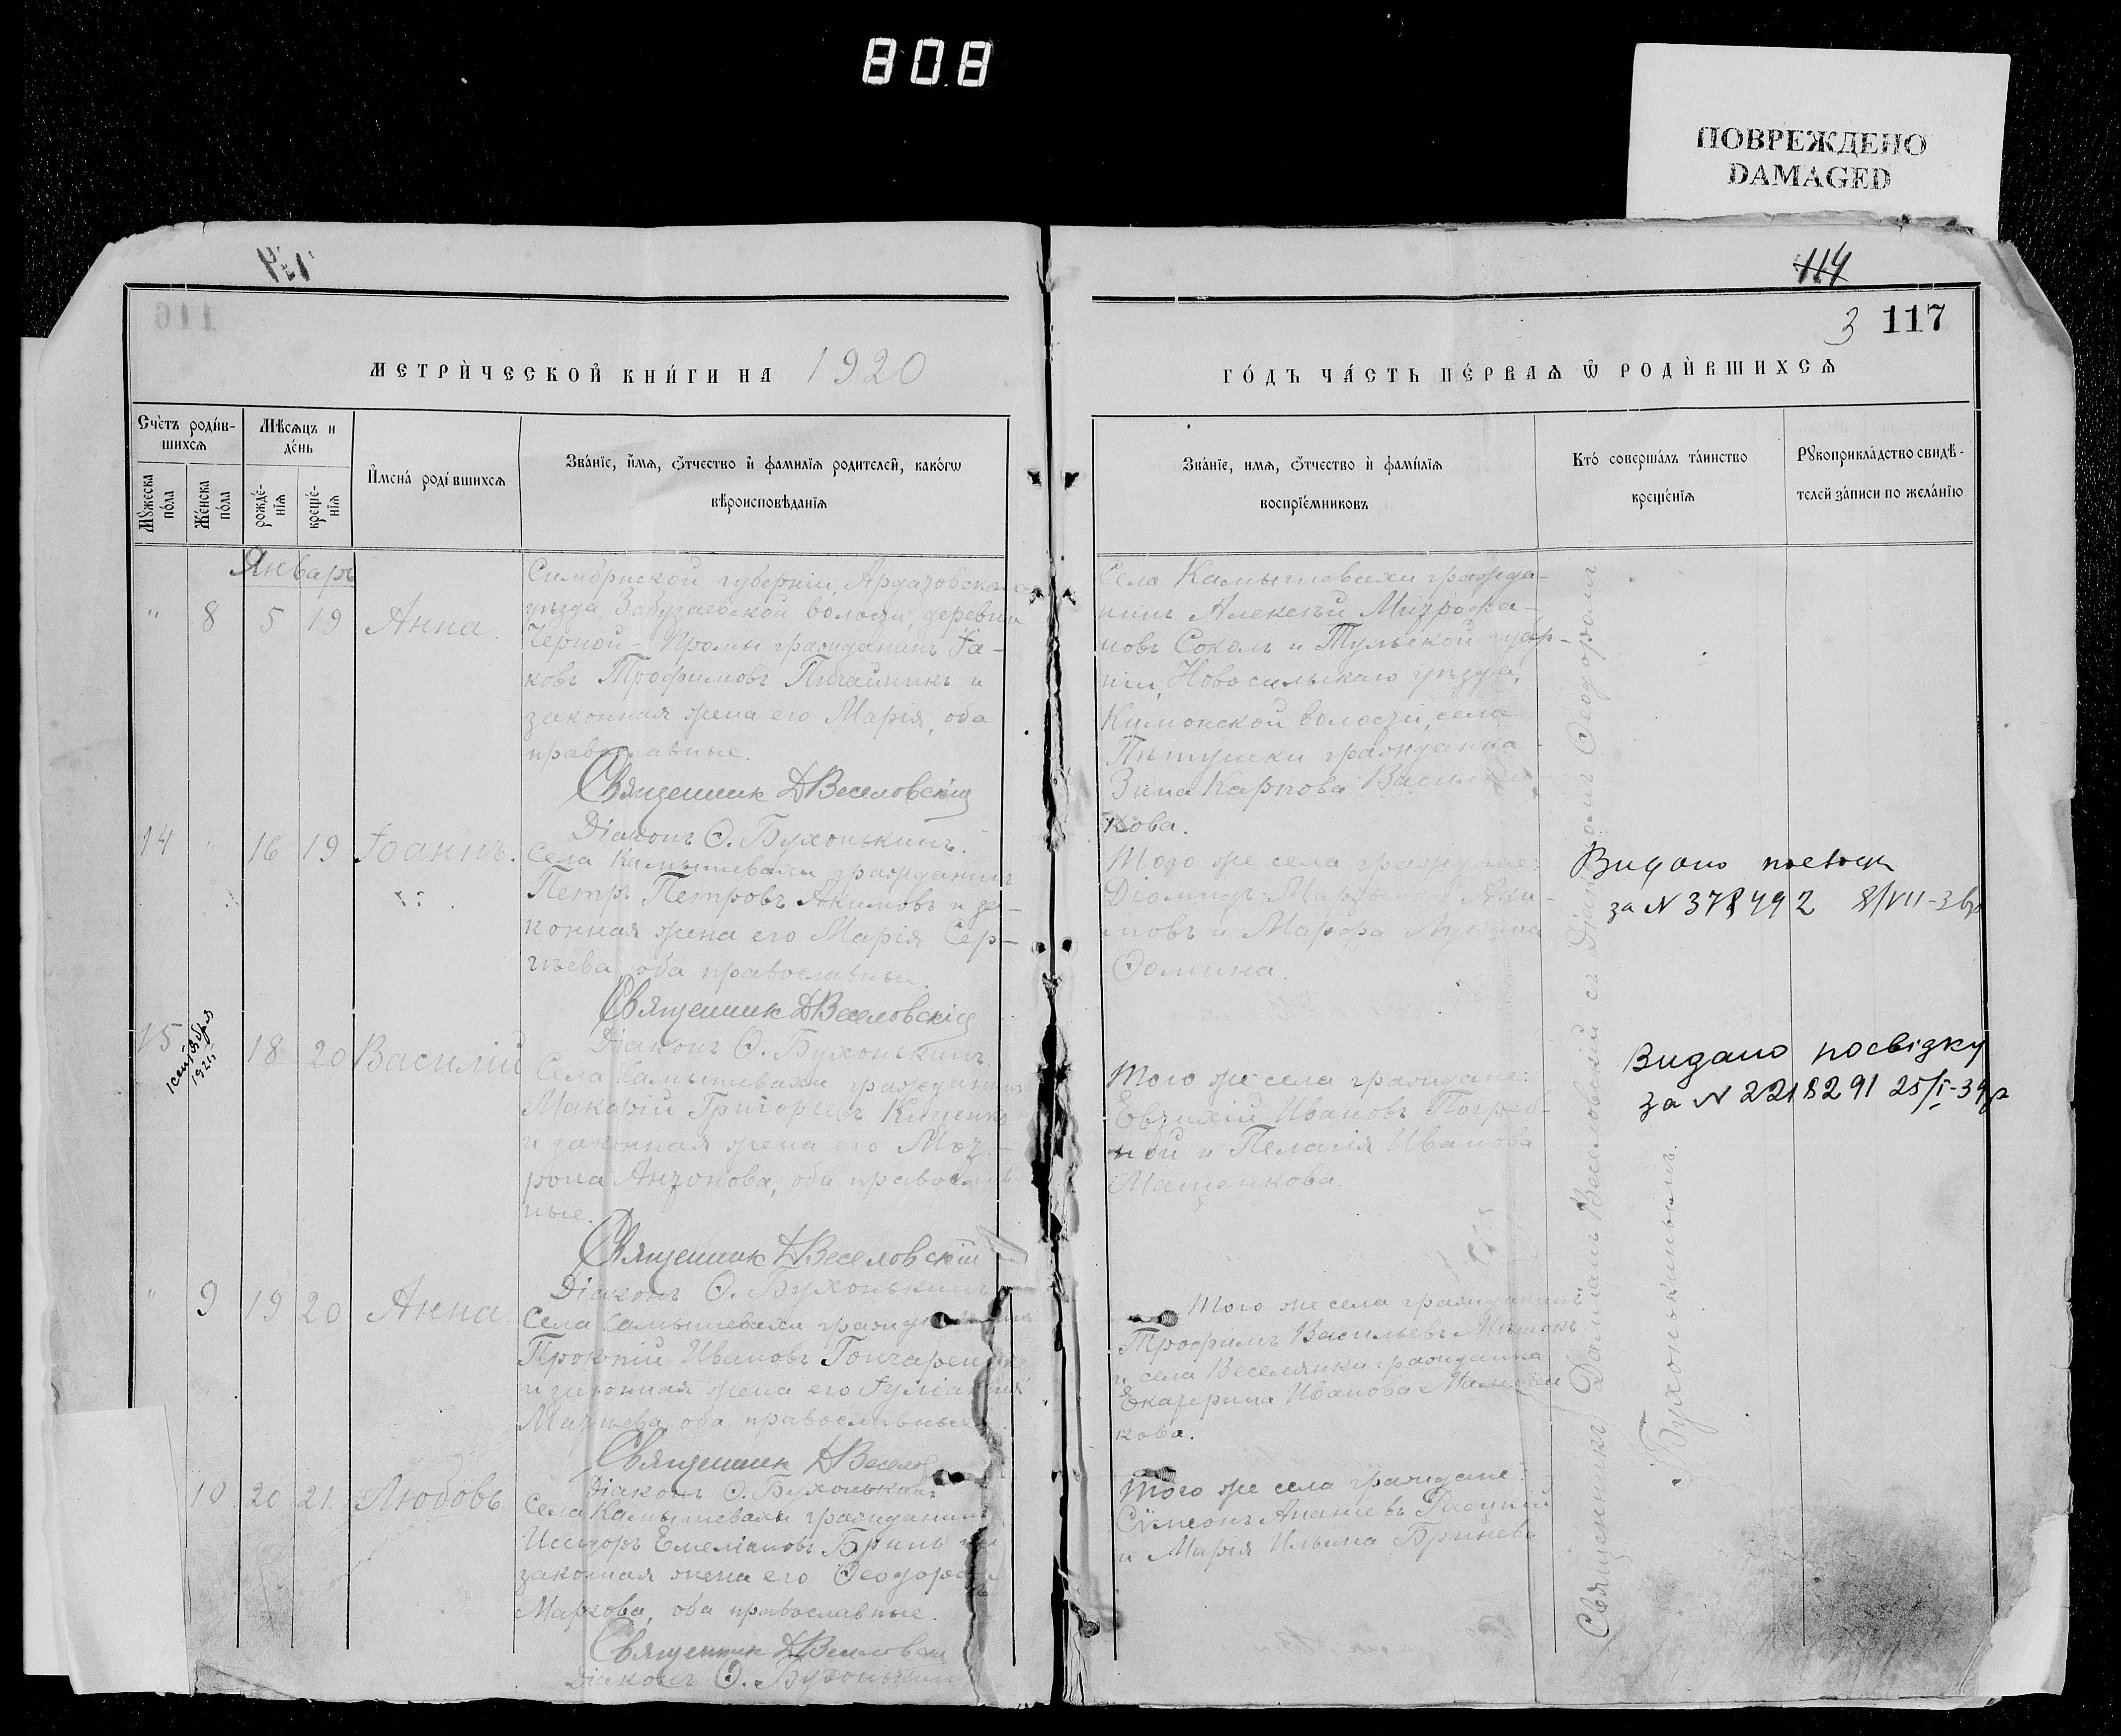 808
ПОВРЕЖДЕНО
DAMAGED
114
3 117
МЕТРИ́ЧЕСКОЙ КНИ́ГИ НА 1920
ГО́ДЪ ЧА́СТЬ ПЕ́РВАѦ Ѡ РОДИ́ВШИХСѦ
Сче́тъ роди́в-
шихсѧ
Мѣ́сѧцъ и
де́нь
Мꙋ́жеска
по́ла
Же́нска
по́ла
рожде́-
нїѧ
креще́-
нїѧ
И҆мена̀ роди́вшихсѧ
Зва́нїе, и҆́мѧ, ѻ҆́тчество и҆ фами́лїѧ роди́телей, како́гѡ
вѣроисповѣ́данїѧ
Зва́нїе, имѧ, ѻ҆́тчество и҆ фами́лїѧ
воспрїе́мниковъ
Кто́ соверша́лъ та́инство
креще́нїѧ
Рꙋкоприкла́дство свидѣ́-
телей за́писи по жела́нїю
Январь
" 8 5 19 Анна.
Симбирской губерніи, Ардатовскаго
уѣзда, Забузаевской волости, деревни
Черной Промы гражданинъ Іа-
ковъ Трофимовъ Пичайникъ и
законная жена его Марія, оба
православные.
Священник ДВеселовскій
Діаконъ Ѳ. Бухонькинъ.
Села Камышевахи гражда-
нинъ Алексѣй Митрофа-
новъ Соколъ и Тульской губер-
ніи, Новосильскаго уѣзда,
волости, села
Пѣтушки гражданка
Карпова Василь
кова.
14 " 16 19 Іоаннъ.
Села Камышевахи гражданинъ
Петръ Петровъ Акимовъ и за-
конная жена его Марія Сер-
гѣева, оба православные.
Священник ДВеселовскій
Діаконъ Ѳ. Бухонькинъ
Того же села граждане:
Діомидъ Аки-
мовъ и Марфа Лукина
Ѳомина.
Видано
за N 378492 8/VII-3
15 18 20 Василій
1 сентября
1921
Села Камышевахи гражданинъ
Макарій Григорьевъ Киценко
и законная жена его Мат-
рона Антонова, оба православ
ные.
Священник ДВеселовскій
Діаконъ Ѳ. Бухонькинъ
Того же села граждане:
Евтихій Ивановъ Погреб-
ной и Пелагія Иванова
Мащенкова.
Видано посвідку
за N 2218291 25/I-34р
" 9 19 20 Анна.
Села Камышевахи гражданинъ
Прокопій Ивановъ Гончаренко
и законная жена его Іуліанія
оба православные.
Священник ДВеселов
Діаконъ Ѳ. Бухонькинъ
Того же села гражданинъ
Трофимъ Васильевъ
и села Веселянки гражданка
Екатерина Иванова
кова.
10 20 21. Любовь
Села Камышевахи гражданинъ
Исидоръ Емеліановъ Бринь и
законная жена его Ѳеодора
Маркова, оба православные.
Священник ДВеселовскій
Діаконъ Ѳ. Бухонькинъ
Того же села граждане:
Сѵмеонъ Ананіевъ
и Марія Ильина Бринева
Священникъ Даміанъ Веселовскій съ діакономъ Ѳеодоромъ
Бухонькинымъ.